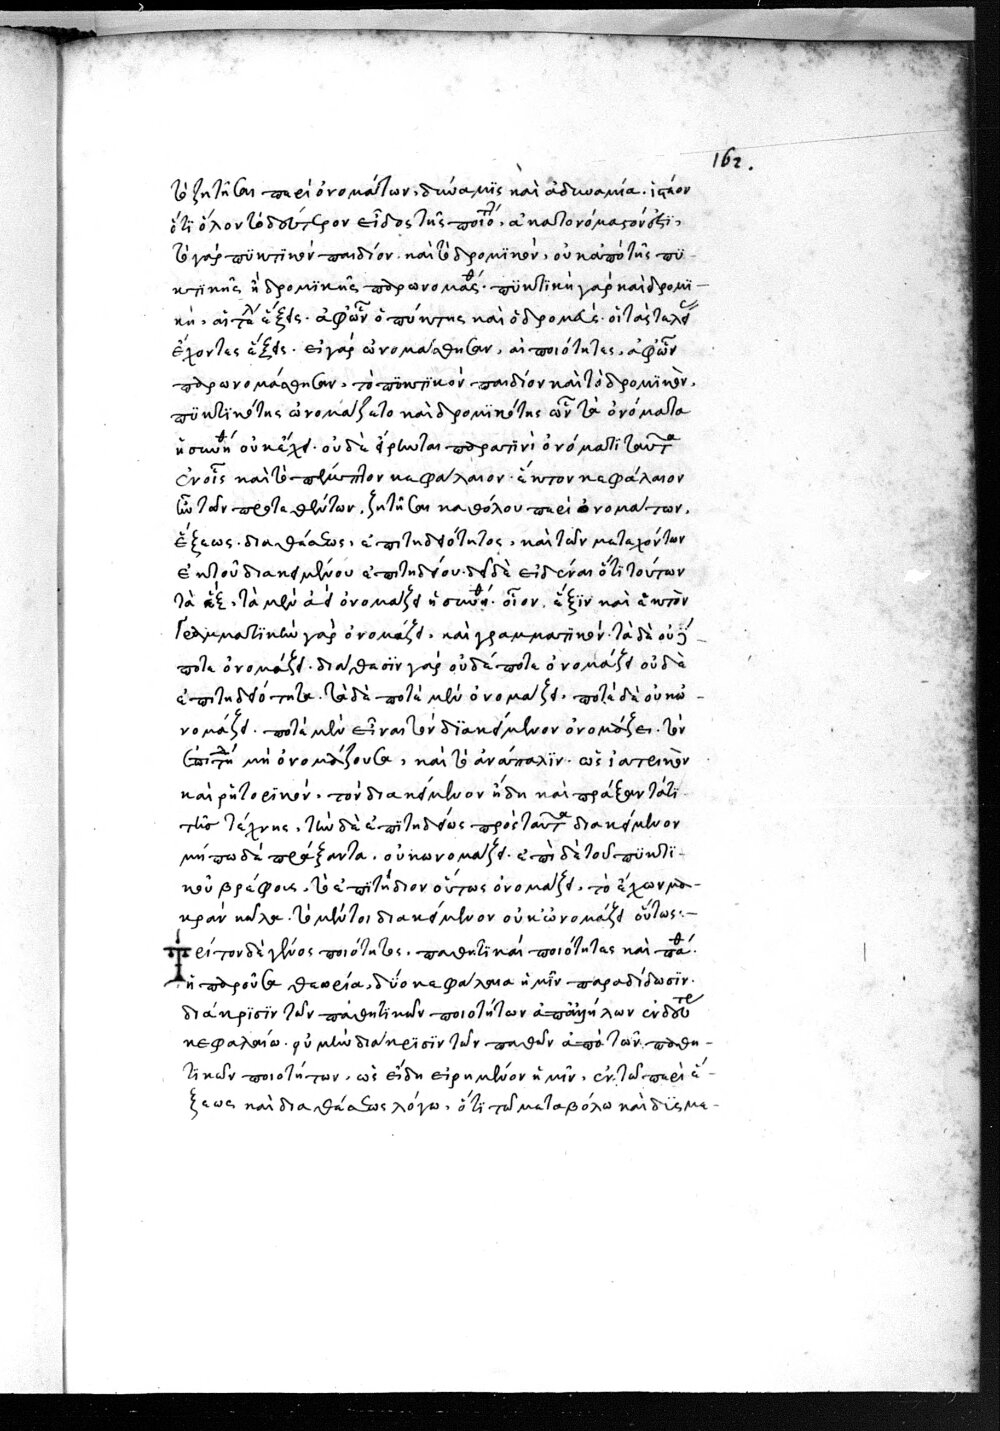 162.
τὸ ζητῆσαι περὶ ὀνομάτων, δύναμϊς καὶ ἀδυναμία. ἰστέον
ὅτι ὅλον τὸ δεύτερον εἶδος τῆς ποιότ, ἀκατονόμαστόν ἐστϊ,
τὸ γὰρ πϋκτικὸν παιδίον. καὶ τὸ δρομϊκὸν, οὐκ ἀπὸ τῆς πϋ-
κτϊκῆς ἢ δρομϊκῆς παρωνομάσθ. πϋκτικὴ γὰρ καὶ δρομϊ-
κὴ, αἱ τέλ ἕξεις. ἀφ' ὧν ὁ πύκτης καὶ ὁ δρομεὺς. οἱ τὰς τελεί
ἔχοντες ἕξεις. εἰ γὰρ ὠνομάσθησαν, αἱ ποιότητες, ἀφ' ὧν
παρωνομάσθησαν, τὸ πϋκτϊκὸν παιδίον καὶ τὸ δρομϊκὸν,
πϋκτϊκότης ὠνομάζετο καὶ δρομϊκότης ὧν τὰ ὀνόματα
ἡ συνήθ οὐκ ἔχει. οὐδὲ εἴρηται παρά τϊνϊ ὀνόματι ταῦτα
ἐν οἷς καὶ τὸ πέμπτον κεφάλαιον. ἕκτον κεφάλαιον
τῶν προτεθέντων, ζητῆσαι καθόλου περὶ ὀνομάτων,
ἕξεως. διαθέσεως, ἐπιτηδειότητος, καὶ τῶν μετεχόντων
ἐκ τοῦ διακειμένου ἐπιτηδείου. δεῖ δὲ εἰδέναι ὅτϊ τούτων
τὰ ἓξ, τὰ μὲν ἀεὶ ὀνομάζει ἡ συνήθ. οἷον, ἕξϊν καὶ ἑκτὸν
γραμματϊκὴν γὰρ ὀνομάζει, καὶ γραμματϊκὸν. τὰ δὲ οὐδέ-
ποτε ὀνομάζει. διάθεσϊν γὰρ οὐδέποτε ὀνομάζει οὐδὲ
ἐπιτηδειότητα. τὰ δὲ ποτὲ μὲν ὀνομάζει, ποτὲ δὲ οὐκ ὀ-
νομάζει. ποτὲ μὲν εἶναι τὸν διακείμενον ὀνομάζει. τὸν
ἐπιτή μὴ ὀνομάζουσα, καὶ τὸ ἀνάπαλϊν. ὡς ἰατρικὸν
καὶ ρητορϊκὸν, τὸν διακείμενον ἤδη καὶ πράξαντά τϊ
τῆς τέχνης, τὸν δὲ ἐπϊτηδείως πρὸς ταῦτα διακείμενον
μήπω δὲ πράξαντα, οὐκ ὠνομάζει. ἐπὶ δὲ τοῦ πϋκτϊ-
κοῦ βρέφους, τὸ ἐπϊτήδιον οὕτως ὀνομάζει, τὸ ἔχων μα-
κρὰν κῶλα. τὸ μέντοι διακείμενον οὐκ ὠνομάζει οὕτως:-
Τρίτον δὲ γένος ποιότητος, παθητϊκαὶ ποιότητες καὶ πάθ.
ἡ παροῦσα θεωρία, δύο κεφάλαια ἡμῖν παραδίδωσϊν.
διάκρϊσϊν τῶν παθητϊκῶν ποιοτήτων ἀπ' ἀλλήλων ἐν δευτέρ
κεφαλαίω. οὐ μὴν διάκρϊσϊν τῶν παθῶν ἀπὸ τῶν παθη-
τϊκῶν ποιοτήτων, ὡς εἴδη εἰρημένον ἡμῖν, ἐν τῶ περὶ ἕ-
ξεως καὶ διαθέσεως λόγω, ὅτϊ τῶ μεταβόλω καὶ δϋσμε-